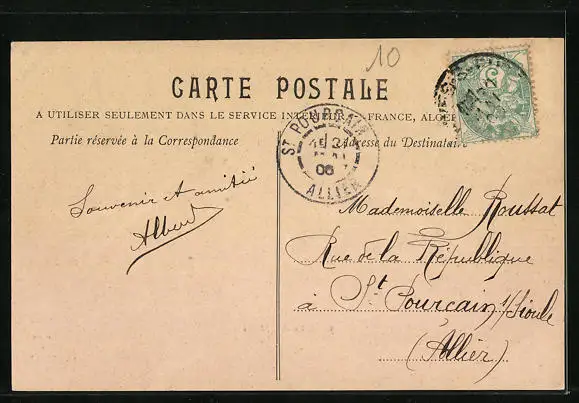 10
CARTE POSTALE
A UTILISER SEULEMENT DANS LE SERVICE INTÉRIEUR FRANCE, ALGÉ
Partie réservée à la Correspondance
Adresse du Destinataire
ST POURÇAIN
15
06
ALLIER
Souvenir et amitié
Albert
Mademoiselle Roussat
Rue de la République
à St Pourcain s/Sioule
(Allier)